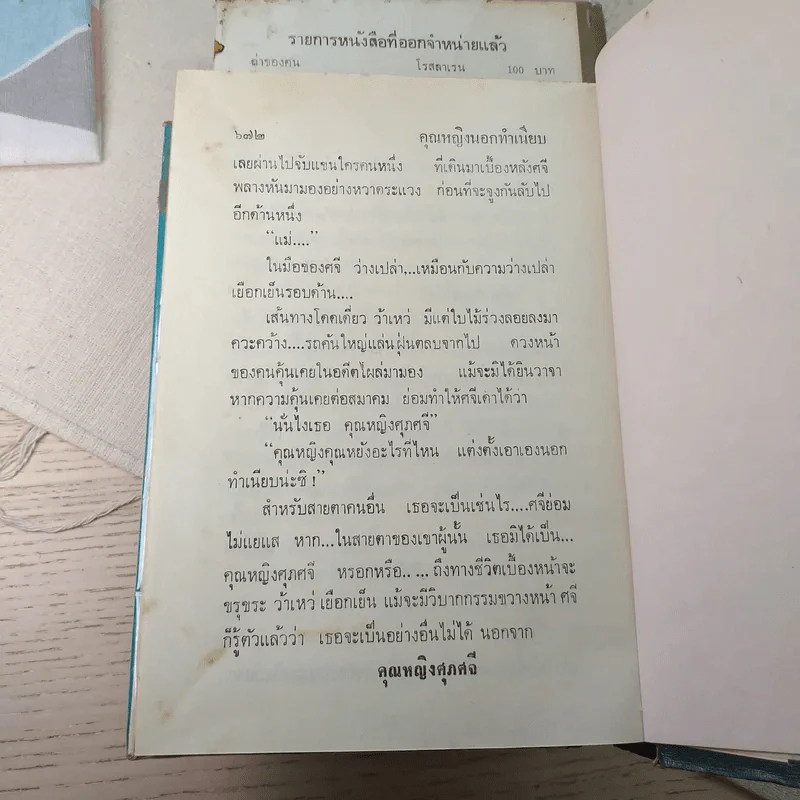 รายการหนังสือที่ออกจำหน่ายแล้ว
ค่าของคน โรสลาเรน 100 บาท
๖๗๒ คุณหญิงนอกทำเนียบ
เลยผ่านไปจับแขนใครคนหนึ่ง ที่เดินมาเบื้องหลังศจี
พลางหันมามองอย่างหวาดระแวง ก่อนที่จะจูงกันลับไป
อีกด้านหนึ่ง
“แม่....”
ในมือของศจี ว่างเปล่า...เหมือนกับความว่างเปล่า
เยือกเย็นรอบด้าน....
เส้นทางโดดเดี่ยว ว้าเหว่ มีแต่ใบไม้ร่วงลอยลงมา
ควะคว้าง....รถคันใหญ่แล่นฝุ่นตลบจากไป ดวงหน้า
ของคนคุ้นเคยในอดีตโผล่มามอง แม้จะมิได้ยินวาจา
หากความคุ้นเคยต่อสมาคม ย่อมทำให้ศจีเดาได้ว่า
“นั่นไงเธอ คุณหญิงศุภศจี”
“คุณหญิงคุณหยังอะไรที่ไหน แต่งตั้งเอาเองนอก
ทำเนียบน่ะซิ !”
สำหรับสายตาคนอื่น เธอจะเป็นเช่นไร....ศจีย่อม
ไม่แยแส หาก...ในสายตาของเขาผู้นั้น เธอมิได้เป็น...
คุณหญิงศุภศจี หรอกหรือ.. ... ถึงทางชีวิตเบื้องหน้าจะ
ขรุขระ ว้าเหว่ เยือกเย็น แม้จะมีวิบากกรรมขวางหน้า ศจี
ก็รู้ตัวแล้วว่า เธอจะเป็นอย่างอื่นไม่ได้ นอกจาก
คุณหญิงศุภศจี